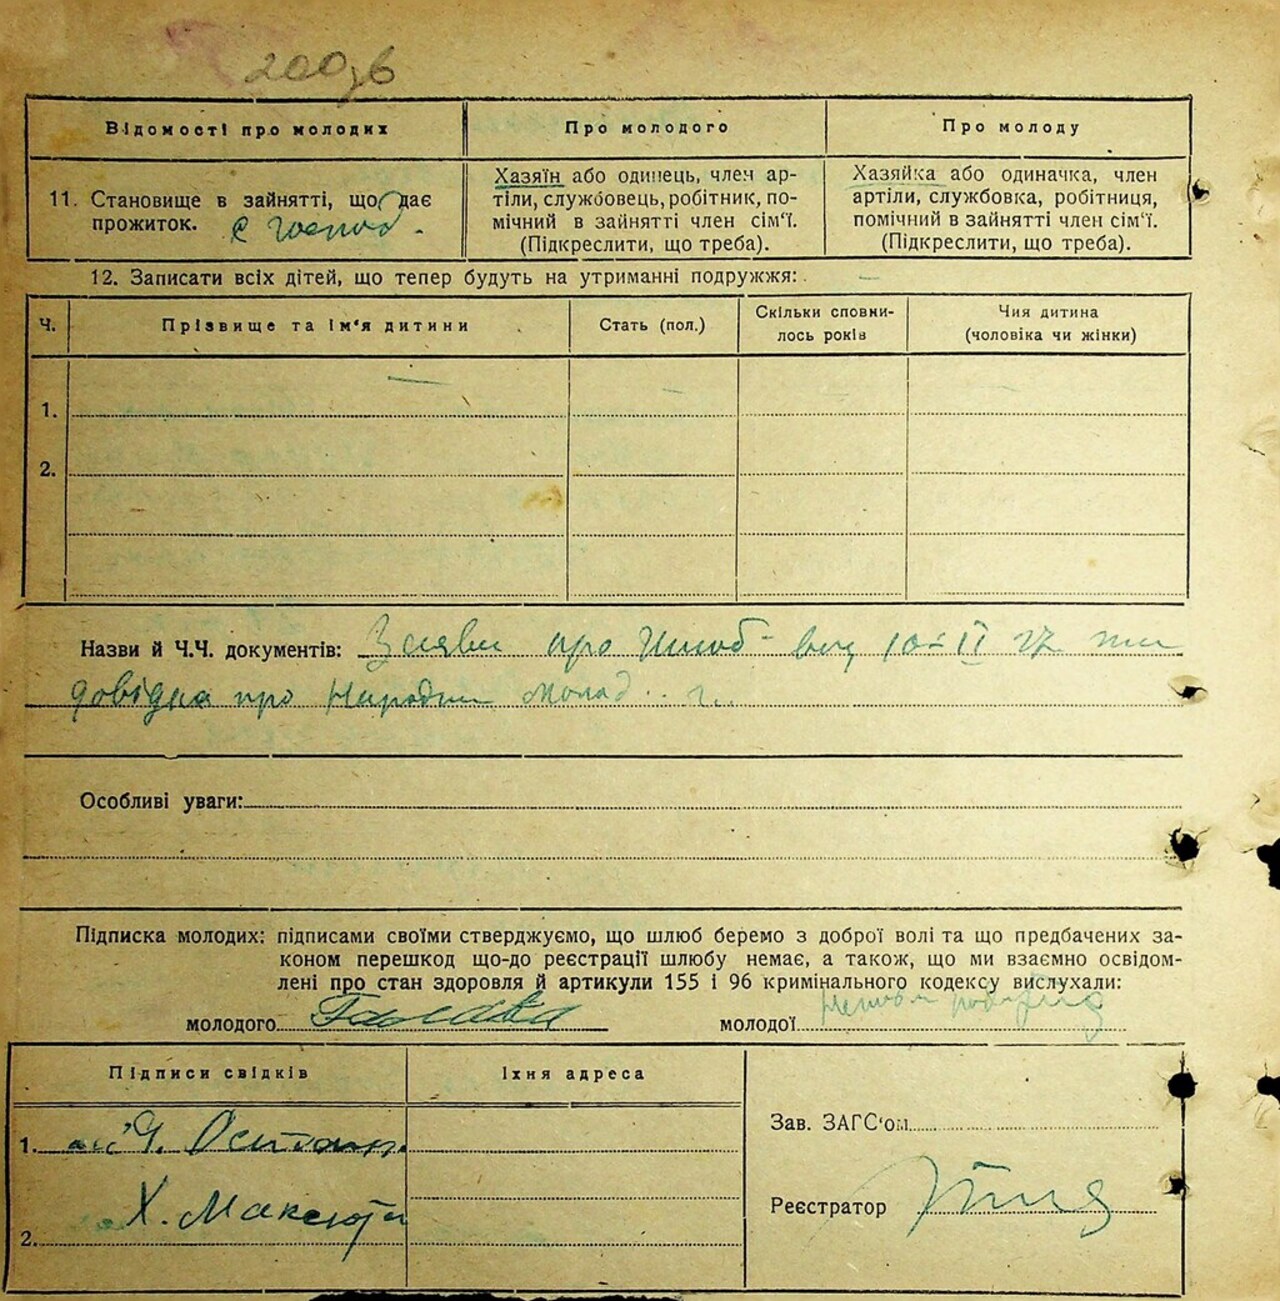 200
Відомості про молодих
Про молодого
Про молоду
11. Становище в зайнятті, що дає
прожиток.
Хазяїн або одинець, член ар-
тіли, службовець, робітник, по-
мічний в зайнятті член сім'ї.
(Підкреслити, що треба).
Хазяйка або одиначка, член
артіли, службовка, робітниця,
помічний в зайнятті член сім'ї.
(Підкреслити, що треба).
12. Записати всіх дітей, що тепер будуть на утриманні подружжя: —
Ч.
Прізвище та ім'я дитини
Стать (пол.)
Скільки сповни-
лось років
Чия дитина
(чоловіка чи жінки)
1.
2.
Назви й Ч.Ч. документів: Заяви про шлюб від 10-II 27
довідка про
Особливі уваги:
Підписка молодих: підписами своїми стверджуємо, що шлюб беремо з доброї волі та що предбачених за-
коном перешкод що-до реєстрації шлюбу немає, а також, що ми взаємно освідом-
лені про стан здоровля й артикули 155 і 96 кримінального кодексу вислухали:
молодого
молодої
Підписи свідків
Їхня адреса
1.
2. Х. Максюта
Зав. ЗАГС'ом
Реєстратор